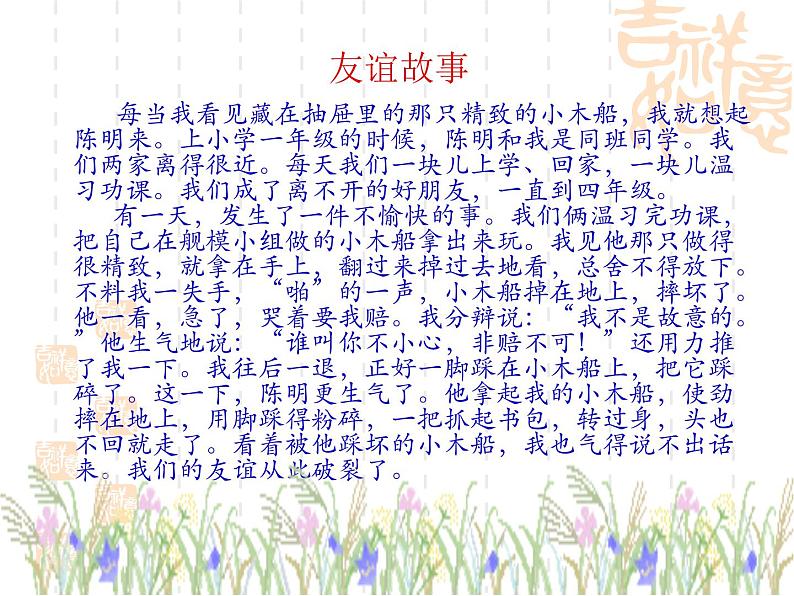 吉祥如意
友谊故事
每当我看见藏在抽屉里的那只精致的小木船，我就想起
陈明来。上小学一年级的时候，陈明和我是同班同学。我
们两家离得很近。每天我们一块儿上学、回家，一块儿温
习功课。我们成了离不开的好朋友，一直到四年级。
有一天，发生了一件不愉快的事。我们俩温习完功课，
把自己在舰模小组做的小木船拿出来玩。我见他那只做得
很精致，就拿在手上，翻过来掉过去地看，总舍不得放下。
不料我一失手，“啪”的一声，小木船掉在地上，摔坏了。
他一看，急了，哭着要我赔。我分辩说：“我不是故意的。
”他生气地说：“谁叫你不小心，非赔不可！”还用力推
了我一下。我往后一退，正好一脚踩在小木船上，把它踩
碎了。这一下，陈明更生气了。他拿起我的小木船，使劲
摔在地上，用脚踩得粉碎，一把抓起书包，转过身，头也
不回就走了。看着被他踩坏的小木船，我也气得说不出话
来。我们的友谊从此破裂了。
吉祥如意
吉祥如意
吉祥如意
吉祥如意